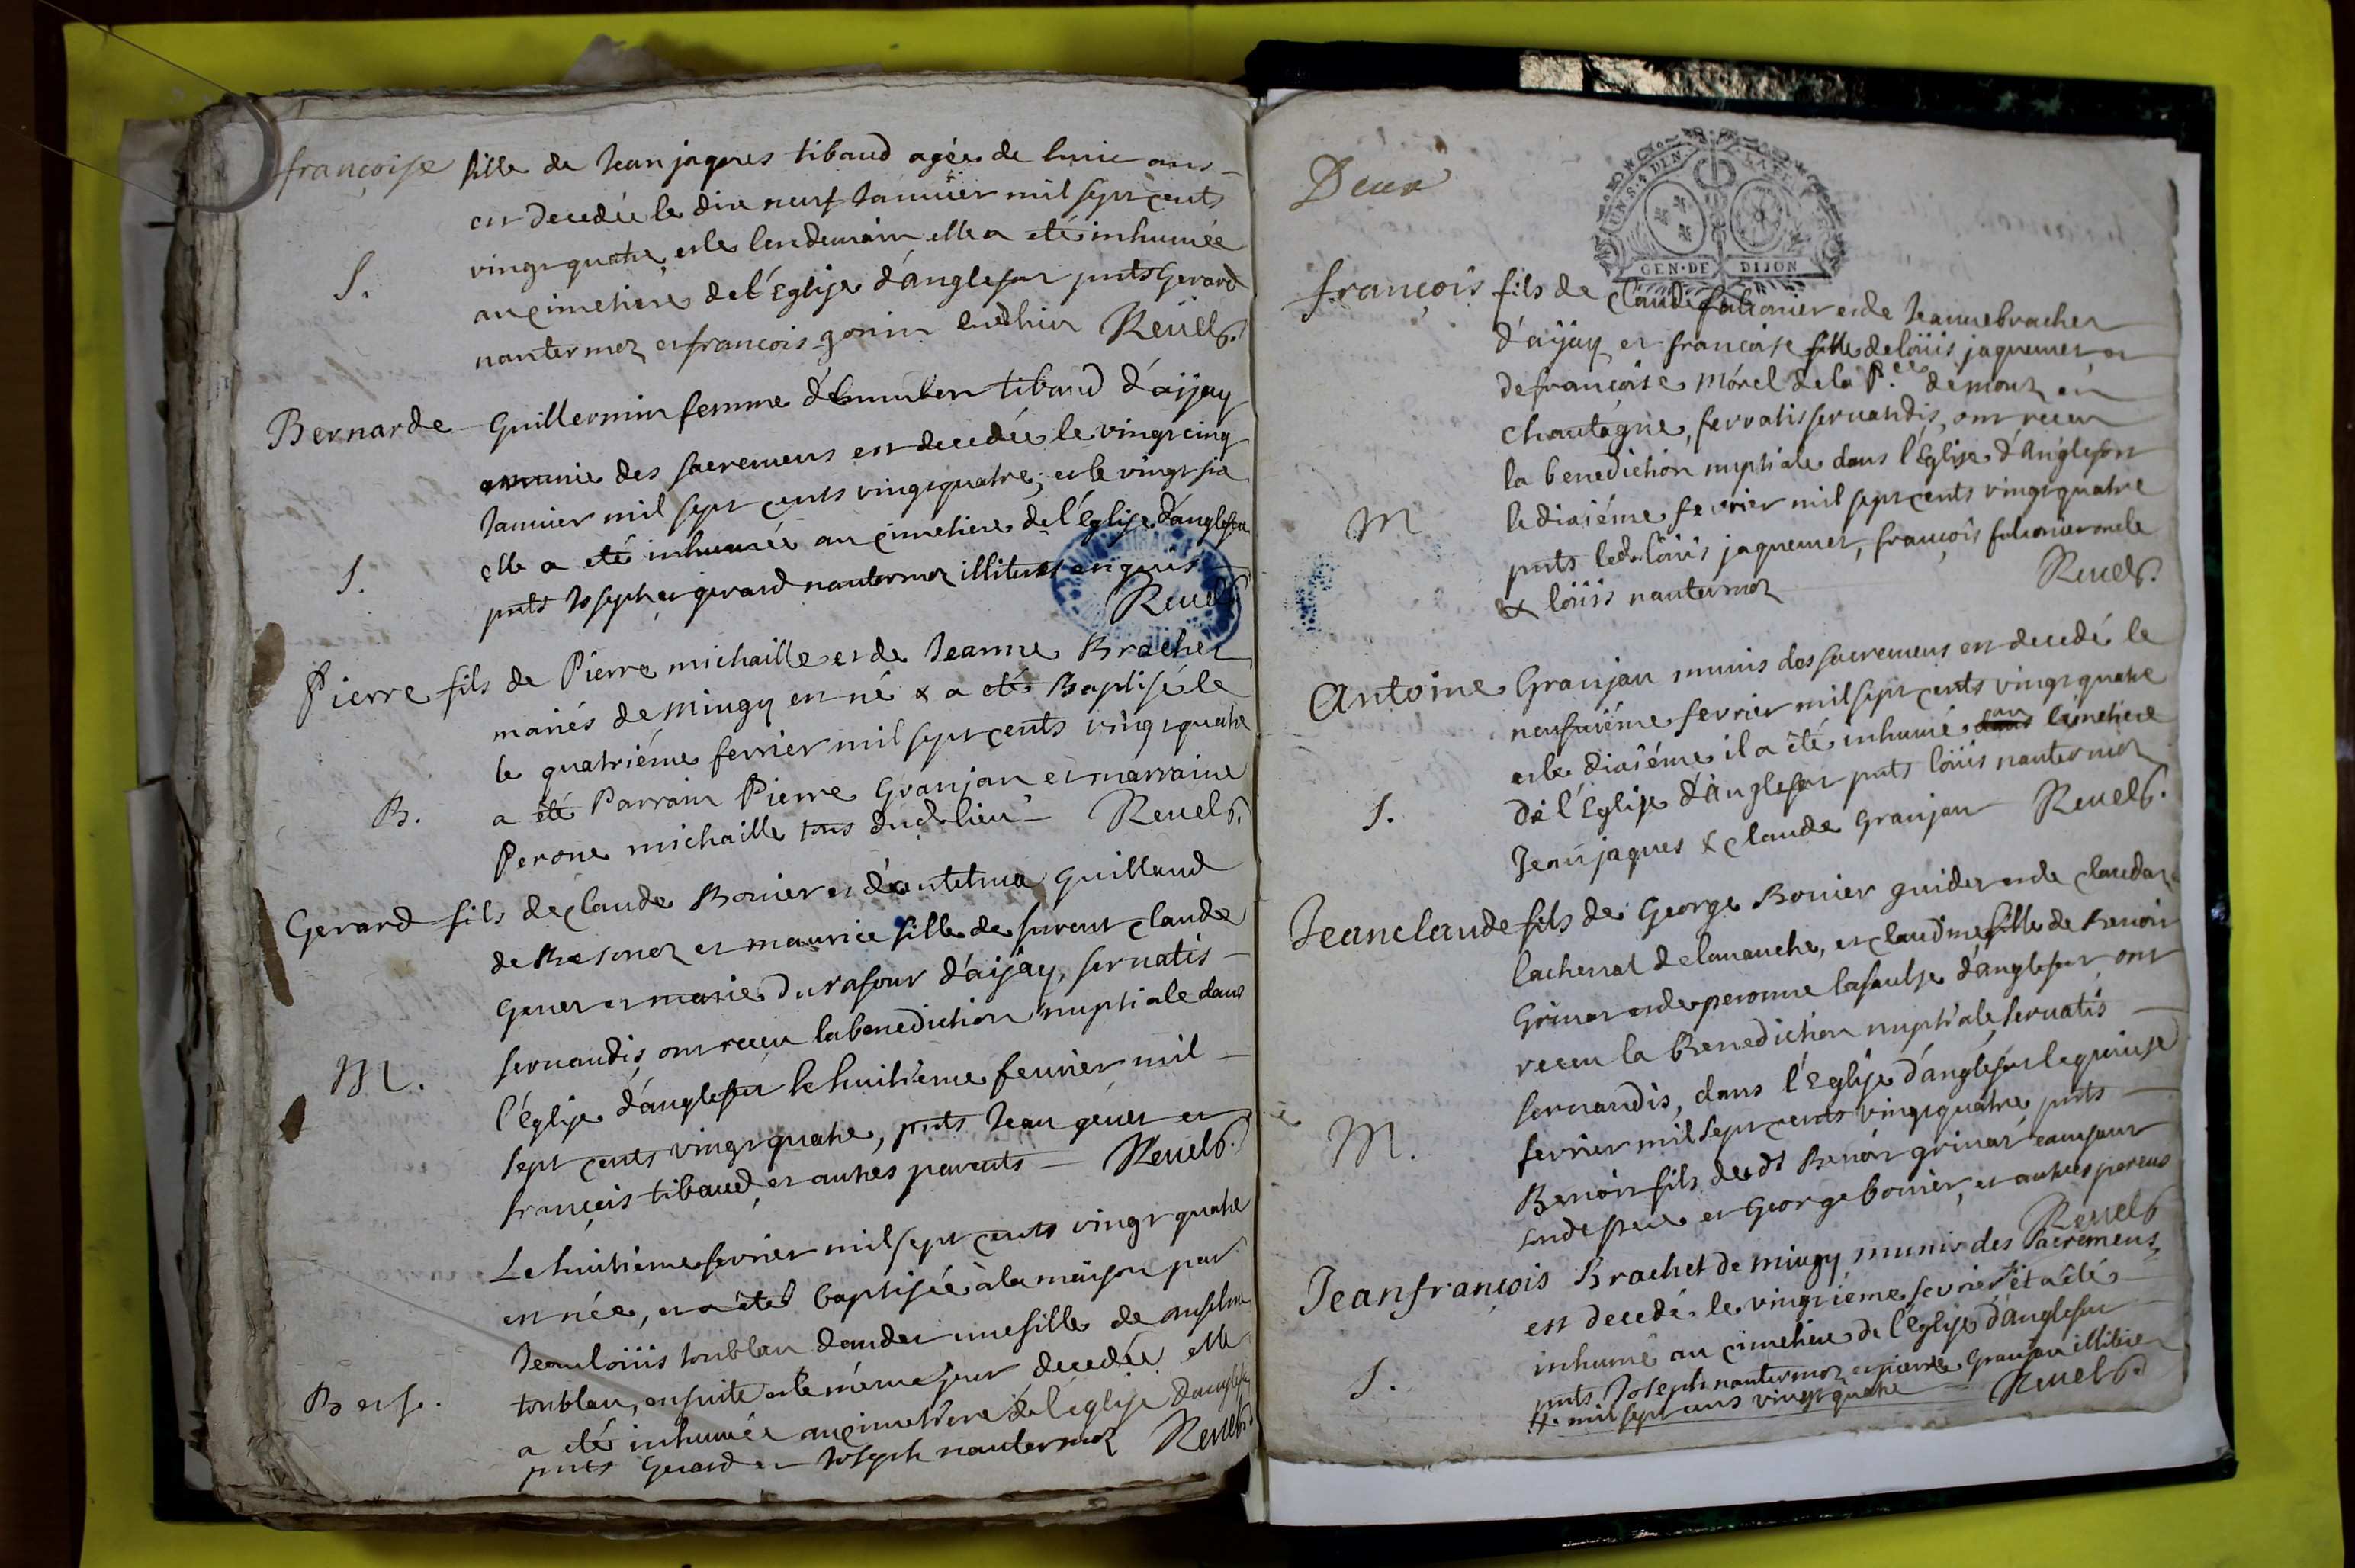 françoise fille de Jean jaques tibaud agée de huit ans
est decedée le dix neuf Janvier mil sept cents
vingt quatre et le lendemain elle a eté inhumée
S.
au cimetiere de l'Eglise d'anglefort pnts Gerard
nantermoz et francois gonin Reuel
Bernarde Guillermin femme d'humbert tibaud d'aijay
munie des sacremens est decedée le vingt cinq
Janvier mil sept cents vingt quatre, et le vingt six
elle a eté inhumée au cimetiere de l'église d'anglefort
S.
pnts Joseph et gerard nantermoz illiteres enquis
Reuel
Pierre fils de Pierre michaille et de Jeanne Brachet
mariés de Miugy est né & a eté Baptisé le
le quatriéme fevrier mil sept cents vingt quatre
B.
a eté Parrain Pierre Granjan et marraine
Perone michaille tous dud. lieu Reuel
Gerard fils de Claude Bonier et d'antelma Guilland
de et maurice fille de furent Claude
Genet et marie Durafour d'aijay, servatis
servandis, ont receu la benediction nuptiale dans
M.
l'église d'anglefort le huitieme fevrier mil
sept cents vingt quatre, pnts Jean genet et
françois tibaud et autres parents Reuel
Le huitieme fevrier mil sept cents vingt quatre
est née, et a eté baptisée à la maison par
Jean loüis toublan une fille de anselme
B et S.
toublan, ensuite et le même jour decedée elle
a eté inhumée au cimetiere de l'eglise d'anglefort
pnts Gerard et Joseph nantermoz Reuel
Deux
GEN. DE DIJON
françois fils de Claude falconier et de Jeanne brachet
d'aijay et françoise fille de loüis jaquemet et
de françoise Morel de la P. de Mots en
Chautagne, servatis servandis, ont receu
la benediction nuptiale dans l'Eglise d'Anglefort
M
le dixiéme fevrier mil sept cents vingt quatre
pnts led. loüis jaquemet, françois falconier oncle
& loüis nantermoz Reuel
Antoine Granjan munis des sacremens est decedé le
neufviéme fevrier mil sept cents vingt quatre
et le dixiéme il a été inhumé au cimetiere
S.
de l'Eglise d'Anglefort pnts loüis nantermoz
Jean jaques & Claude Granjan Reuel
Jeanclaude fils de George Bonier guidet et de Claudaz
lachenal de lavanche, et Claudine fille de Benoit
Grinet et de peronne lafaulse d'anglefort ont
receu la Benediction nuptiale, servatis
servandis, dans l'Eglise d'anglefort le quinse
M.
fevrier mil sept cents vingt quatre pnts
Benoit fils dudt Benoit grinet
et George bonier, et autres parens
Reuel
Jeanfrançois Brachet de miugy munis des Sacremens
est decedé le vingtiéme fevrier et a été
inhumé au cimetiere de l'église d'anglefort
S.
pnts Joseph nantermoz et pierre Granjan illiteres
mil sept cens vingt quatre Reuel